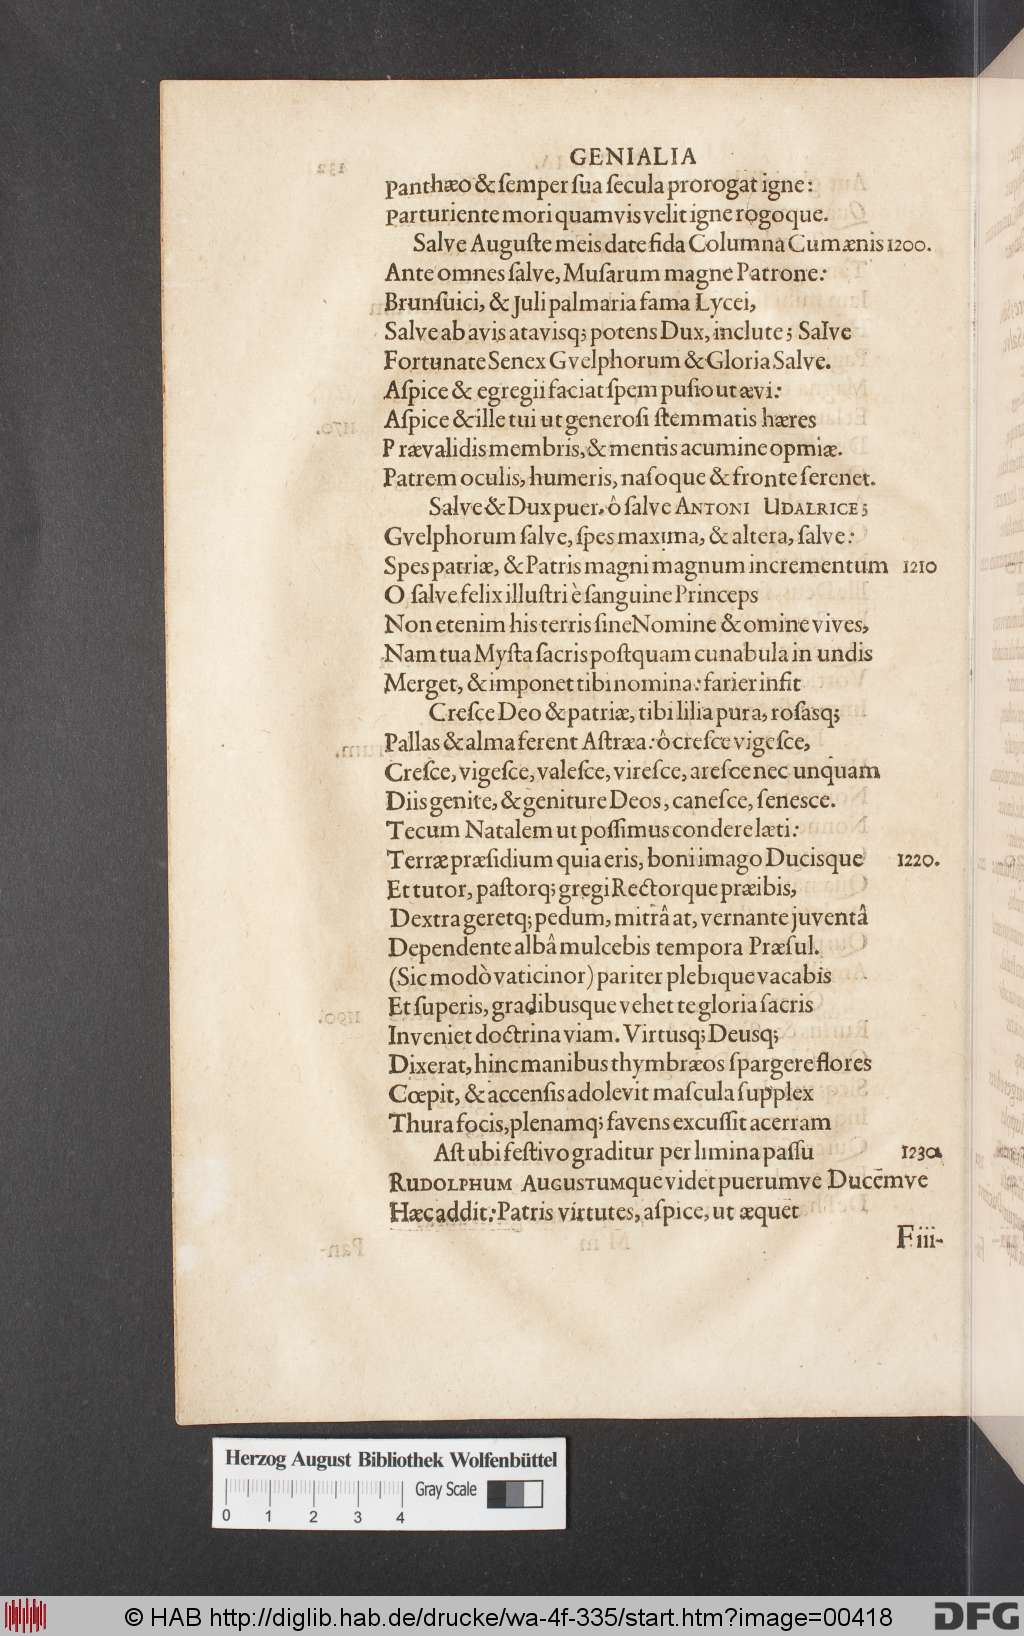 GENIALIA
Panthæo & ſemper ſua ſecula prorogat igne:
Parturiente mori quamvis velit igne rogoque.
Salve Auguſte meis date fida Columna Cumænis 1200.
Ante omnes ſalve, Muſarum magne Patrone:
Brunſuici, & Juli palmaria fama Lycei,
Salve ab avis atavisq; potens Dux, inclute; Salve
Fortunate Senex Gvelphorum & Gloria Salve.
Aſpice & egregii faciat ſpem puſio ut ævi:
Aſpice & ille tui ut generoſi ſtemmatis hæres
Prævalidis membris, & mentis acumine opmiæ.
Patrem oculis, humeris, naſoque & fronte ferenet.
Salve & Dux puer, ô ſalve ANTONI UDALRICE;
Gvelphorum ſalve, ſpes maxima, & altera, ſalve:
Spes patriæ, & Patris magni magnum incrementum 1210
O ſalve felix illuſtri è ſanguine Princeps
Non etenim his terris ſine Nomine & omine vives,
Nam tua Myſta ſacris poſtquam cunabula in undis
Merget, & imponet tibi nomina: farier infit
Creſce Deo & patriæ, tibi lilia pura, roſasq;
Pallas & alma ferent Aſtræa: ô creſce vigeſce,
Creſce, vigeſce, valeſce, vireſce, areſce nec unquam
Diis genite, & geniture Deos, caneſce, ſenesce.
Tecum Natalem ut poſſimus condere læti:
Terræ præſidium quia eris, boni imago Ducisque 1220.
Et tutor, paſtorq; gregi Rectorque præibis,
Dextra geretq; pedum, mitrâ at, vernante juventâ
Dependente albâ mulcebis tempora Præſul.
(Sic modò vaticinor) pariter plebique vacabis
Et ſuperis, gradibusque vehet te gloria ſacris
Inveniet doctrina viam. Virtusq; Deusq;
Dixerat, hinc manibus thymbræos ſpargere flores
Cœpit, & accenſis adolevit maſcula ſupplex
Thura focis, plenamq; favens excuſſit acerram
Aſt ubi feſtivo graditur per limina paſſu 1230.
RUDOLPHUM AUGUSTUMque videt puerumve Ducemve
Hæc addit: Patris virtutes, aſpice, ut æquet
F iii-
Herzog August Bibliothek Wolfenbüttel
Gray Scale
0 1 2 3 4
© HAB http://diglib.hab.de/drucke/wa-4f-335/start.htm?image=00418
DFG